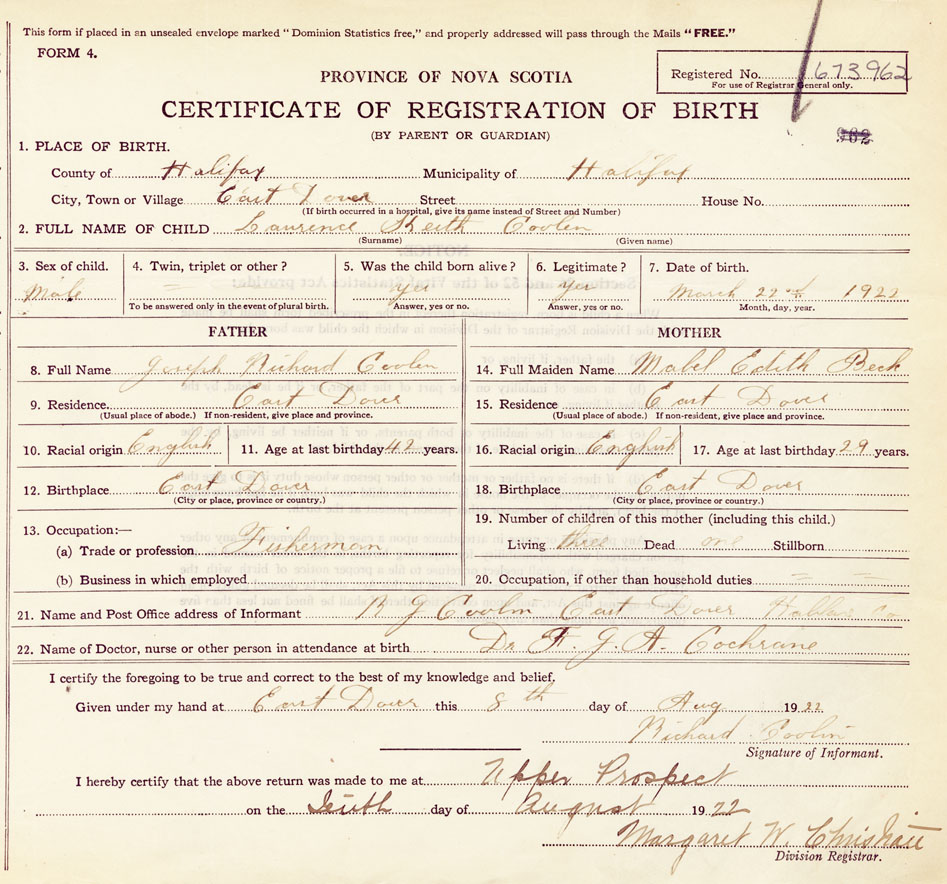 This form if placed in an unsealed envelope marked "Dominion Statistics free," and properly addressed will pass through the Mails "FREE."
FORM 4.
PROVINCE OF NOVA SCOTIA
Registered No. 673962
For use of Registrar General only.
CERTIFICATE OF REGISTRATION OF BIRTH
(BY PARENT OR GUARDIAN)
962
1. PLACE OF BIRTH.
County of Halifax Municipality of Halifax
City, Town or Village East Dover Street House No.
(If birth occurred in a hospital, give its name instead of Street and Number)
2. FULL NAME OF CHILD Laurence Keith Coolen
(Surname) (Given name)
3. Sex of child. 4. Twin, triplet or other? 5. Was the child born alive? 6. Legitimate? 7. Date of birth.
Male = yes yes March 22nd 1922
To be answered only in the event of plural birth. Answer, yes or no. Answer, yes or no. Month, day, year.
FATHER MOTHER
8. Full Name Joseph Richard Coolen 14. Full Maiden Name Mabel Edith Beck
9. Residence East Dover 15. Residence East Dover
(Usual place of abode.) If non-resident, give place and province. (Usual place of abode.) If non-resident, give place and province.
10. Racial origin English 11. Age at last birthday 42 years. 16. Racial origin English 17. Age at last birthday 29 years.
12. Birthplace East Dover 18. Birthplace East Dover
(City or place, province or country.) (City or place, province or country.)
13. Occupation:— 19. Number of children of this mother (including this child.)
(a) Trade or profession Fisherman Living three Dead one Stillborn
(b) Business in which employed 20. Occupation, if other than household duties = =
21. Name and Post Office address of Informant R J Coolen East Dover Halifax Co
22. Name of Doctor, nurse or other person in attendance at birth Dr F. J. A. Cochrane
I certify the foregoing to be true and correct to the best of my knowledge and belief.
Given under my hand at East Dover this 8th day of Aug 1922
Richard Coolin
Signature of Informant.
I hereby certify that the above return was made to me at Upper Prospect
on the Tenth day of August 1922
Margaret W. Christian
Division Registrar.